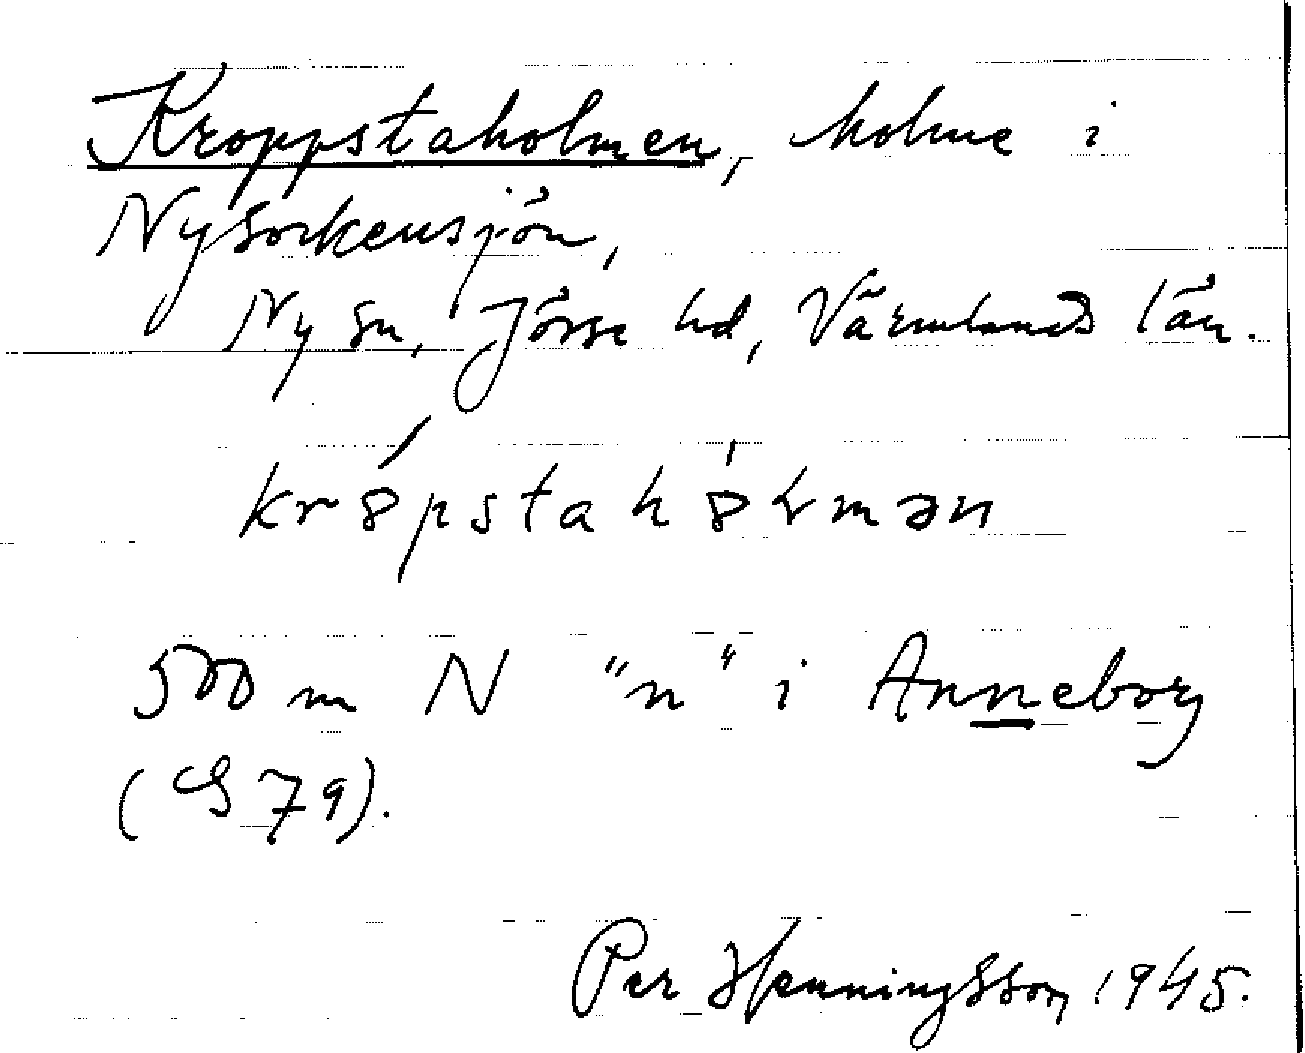 Kroppstaholmen, holme i
Nysockensjön,
Ny sn, Jösse hd, Värmlands län.
kr8́pstah8̍ɽmən
500 m N "n" i Anneborg
(S 79).
Per Henningsson 1945.